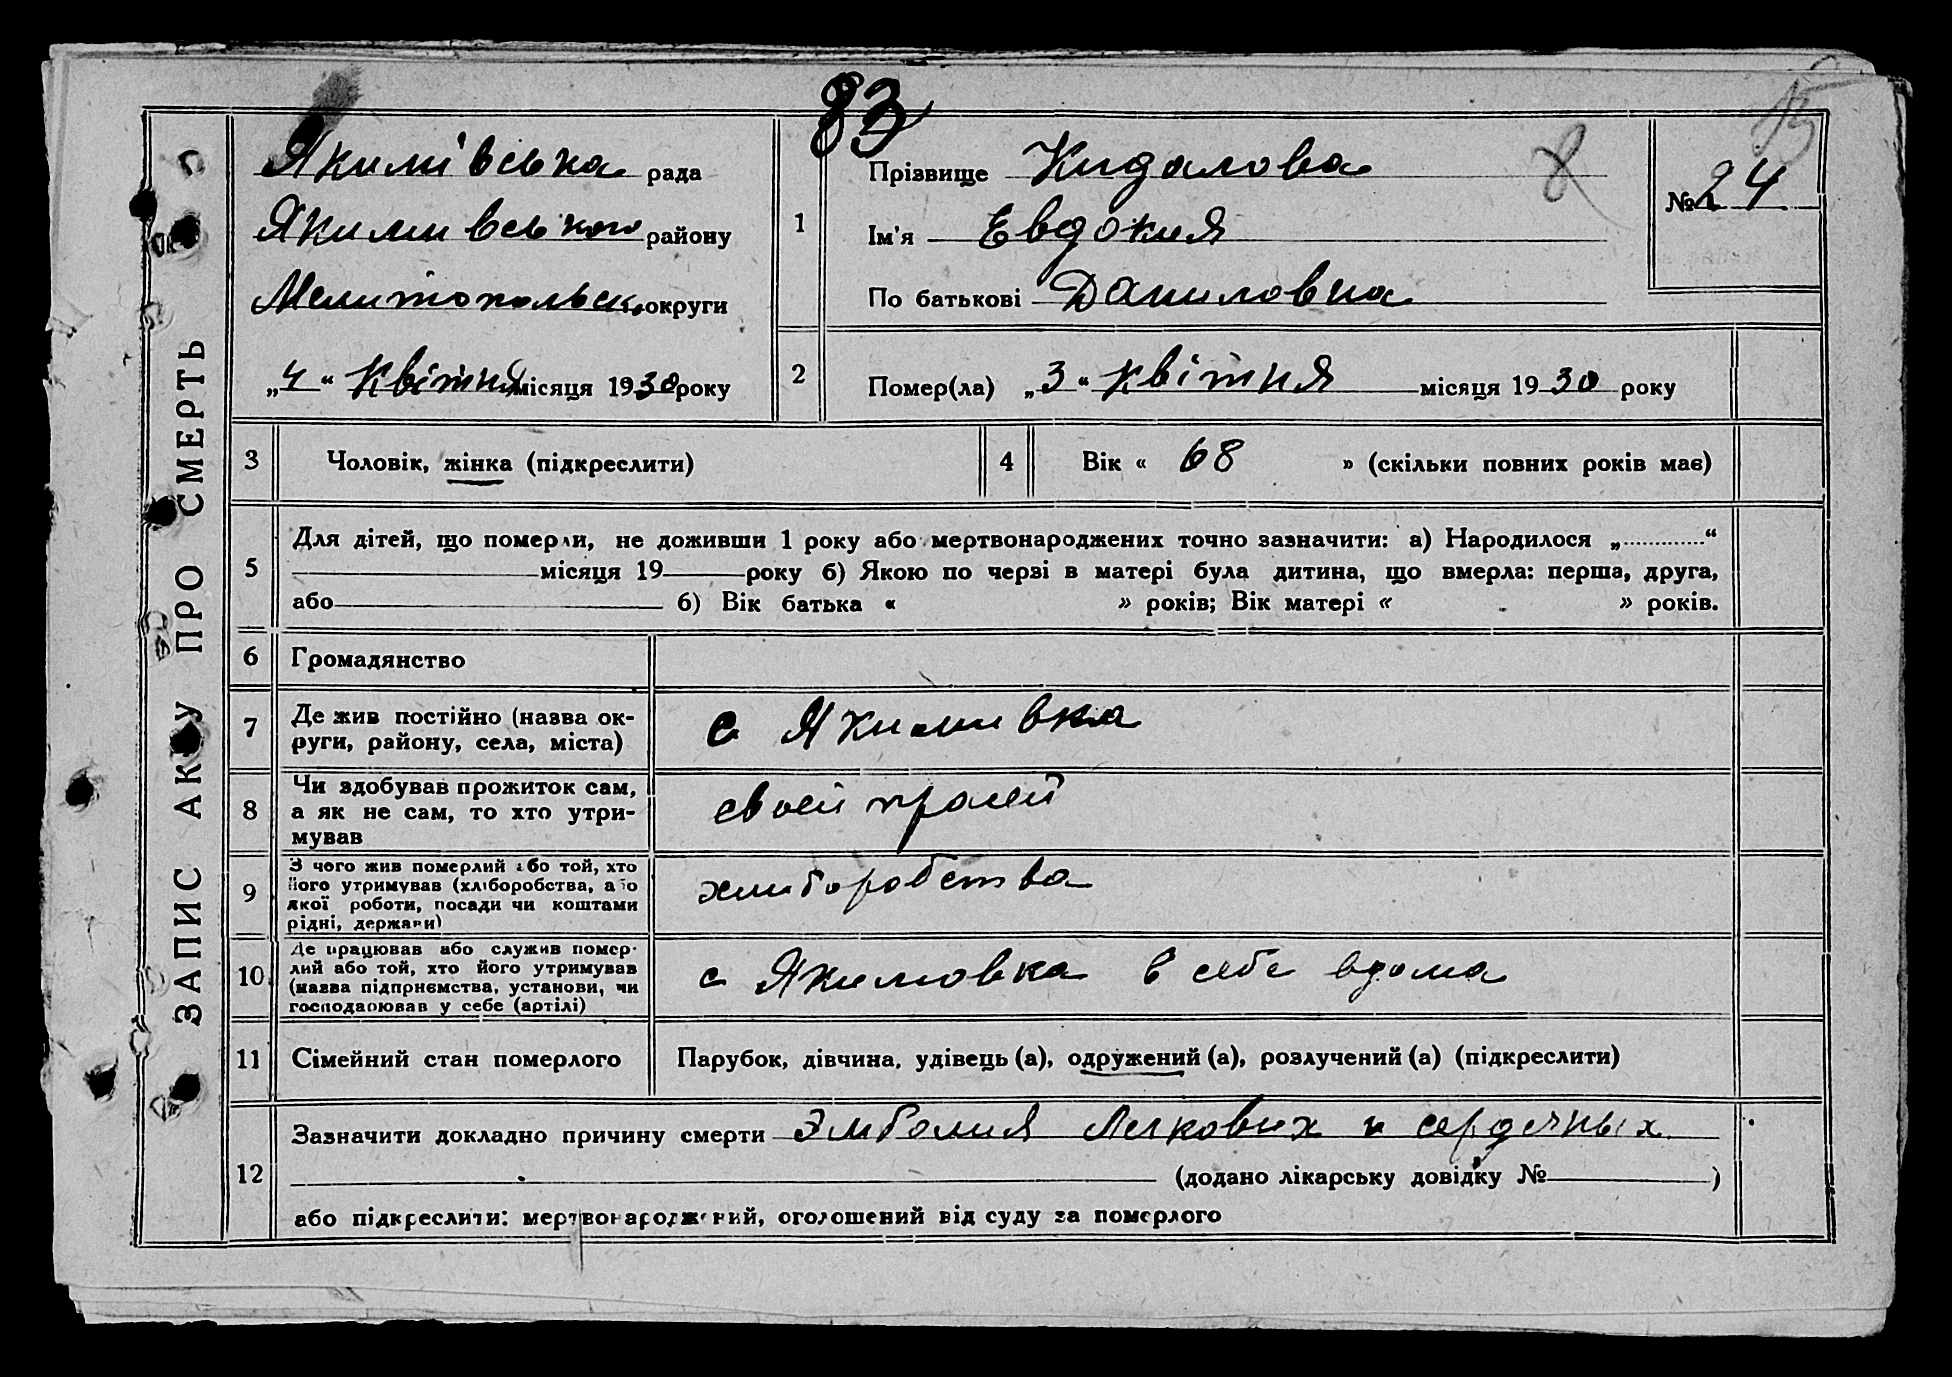 83
15
Якимівська рада
Якимивського району
Мелитопольск. округи
„4“ Квітня місяця 1930 року
1
Прізвище Кидалова
Ім'я Евдокия
По батькові Даниловна
№ 24
8
2
Помер(ла) „3“ Квітня місяця 1930 року
ЗАПИС АКТУ ПРО СМЕРТЬ
3 Чоловік, жінка (підкреслити)
4 Вік « 68 » (скільки повних років має)
5
Для дітей, що померли, не доживши 1 року або мертвонароджених точно зазначити: а) Народилося „............“
місяця 19 року б) Якою по черзі в матері була дитина, що вмерла: перша, друга,
або б) Вік батька « » років; Вік матері « » років.
6 Громадянство
7
Де жив постійно (назва ок-
руги, району, села, міста)
с Якимивка
8
Чи здобував прожиток сам,
а як не сам, то хто утри-
мував
своей працей
9
З чого жив померлий або той, хто
його утримував (хліборобства, або
якої роботи, посади чи коштами
рідні, держави)
хлиборобства
10
Де працював або служив помер-
лий або той, хто його утримував
(назва підприємства, установи, чи
господарював у себе (артілі)
с Якимовка в себе вдома
11 Сімейний стан померлого
Парубок, дівчина, удівець (а), одружений (а), розлучений (а) (підкреслити)
12
Зазначити докладно причину смерти Эмболия Легкових и сердечных
(додано лікарську довідку № )
або підкреслити: мертвонароджений, оголошений від суду за померлого